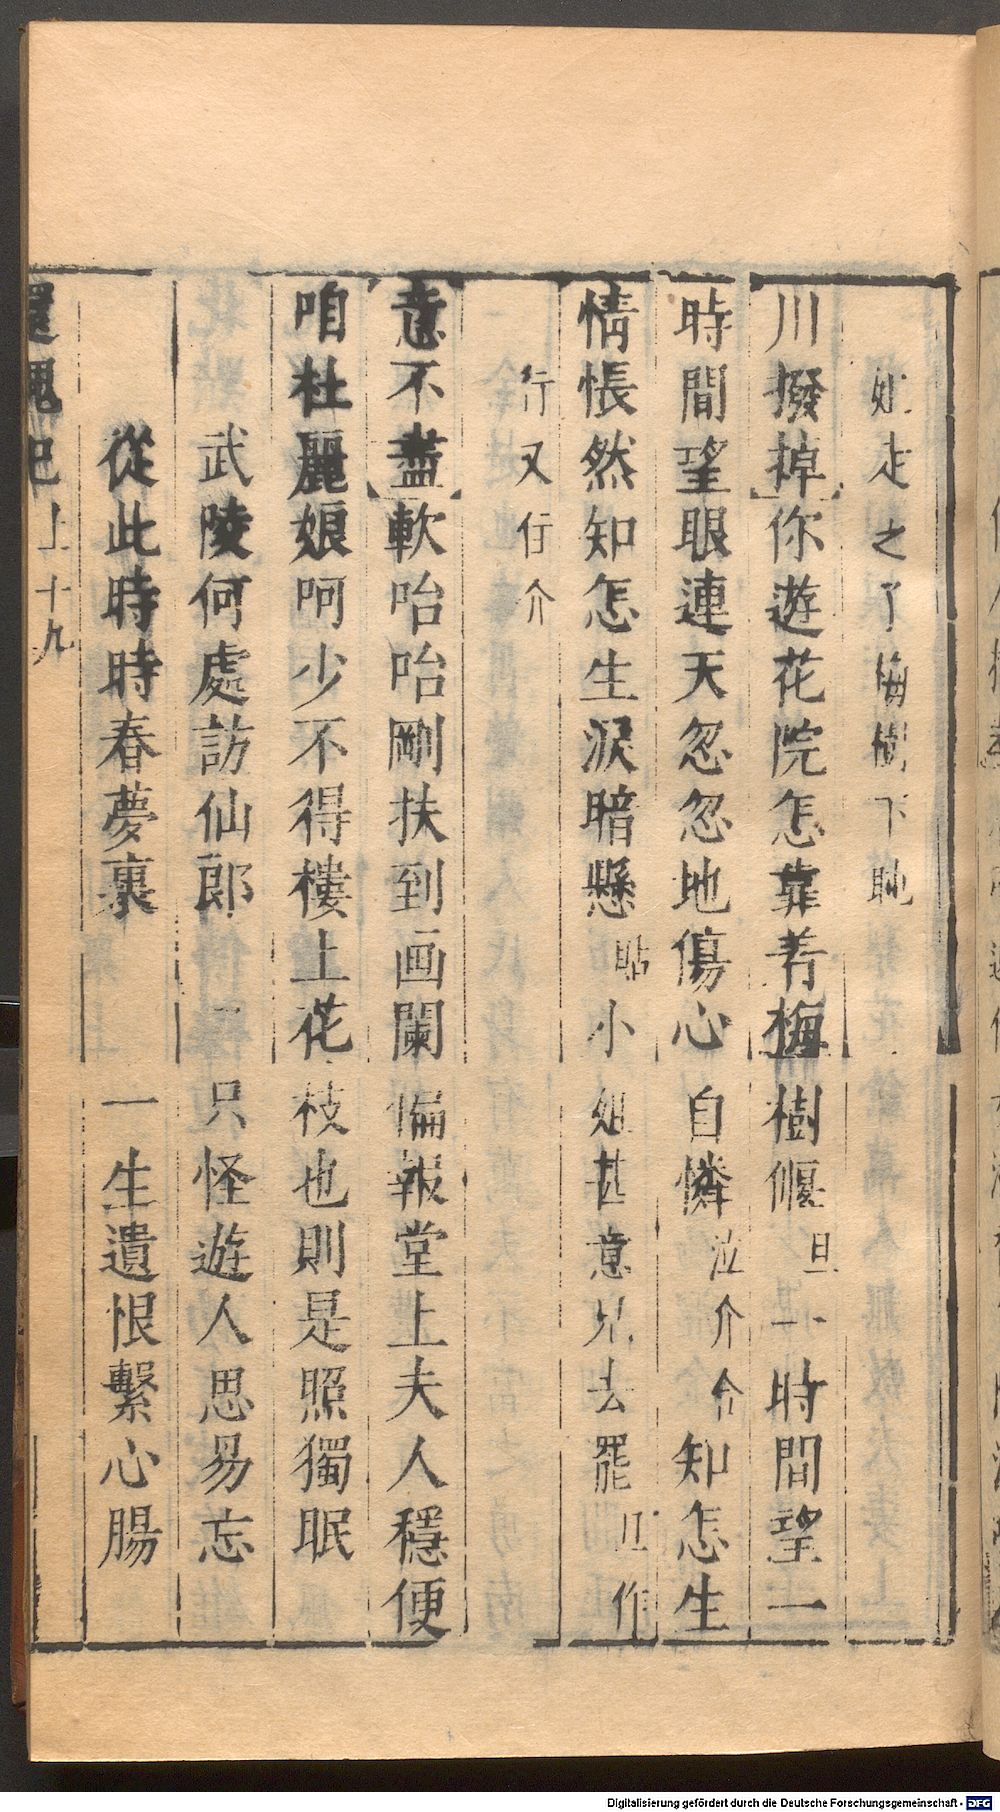 姐走乏了梅樹下眈
川撥棹你遊花院怎靠着梅樹偃旦一時間望一
時間望眼連天忽忽地傷心自憐泣介合知怎生
情悵然知怎生淚暗懸貼小姐甚意兒去罷旦作
行又行介
意不盡軟咍咍剛扶到画闌偏報堂上夫人穩便
咱杜麗娘呵少不得樓上花枝也則是照獨眠
武陵何處訪仙郎　只怪遊人思易忘
從此時時春夢裏　一生遺恨繫心腸
還魂記上十九
Digitalisierung gefördert durch die Deutsche Forschungsgemeinschaft - DFG